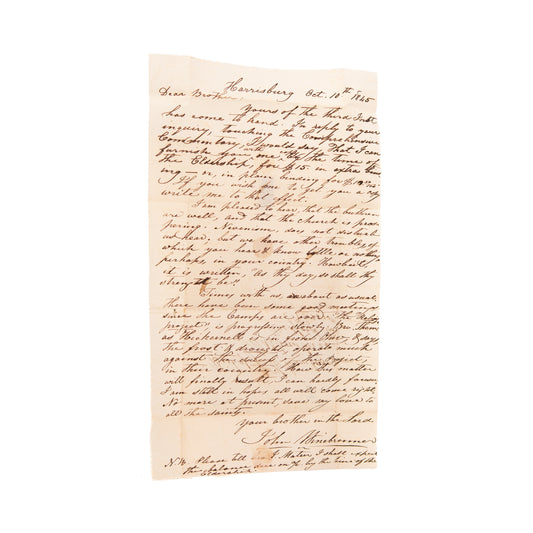 Harrisburg Oct. 10th 1845
Dear Brother,
Yours of the third Inst.
has come to hand. In reply to your
inquiry, touching the Comprehensive
Commentary, I would say, that I can
furnish you with one, by the time of
the Eldership, for $15 in extra
or, in plain binding for
If you wish me to get you a copy
write me to that effect.
I am pleased to hear, that the brethren
are well, and that the church is pros
pering. does not disturb
us here, but we have other troubles of
which you hear & know little or nothing
perhaps, in your country. Howbeit
it is written, "As thy day, so shall thy
strength be."
Times with us are about as usual.
there have been some good meetings
since the Camps are over. The
project is progressing slowly. Bro.
is in
the frost & drought operate much
against the success of the project
in their country. How this matter
will finally result, I can hardly foresee.
I am still in hopes all will come right.
No more at present, save my love to
all the saints.
Your brother in the Lord
John Winebrenner
N.B. Please tell I shall
the balance due on by the time of the
Eldership